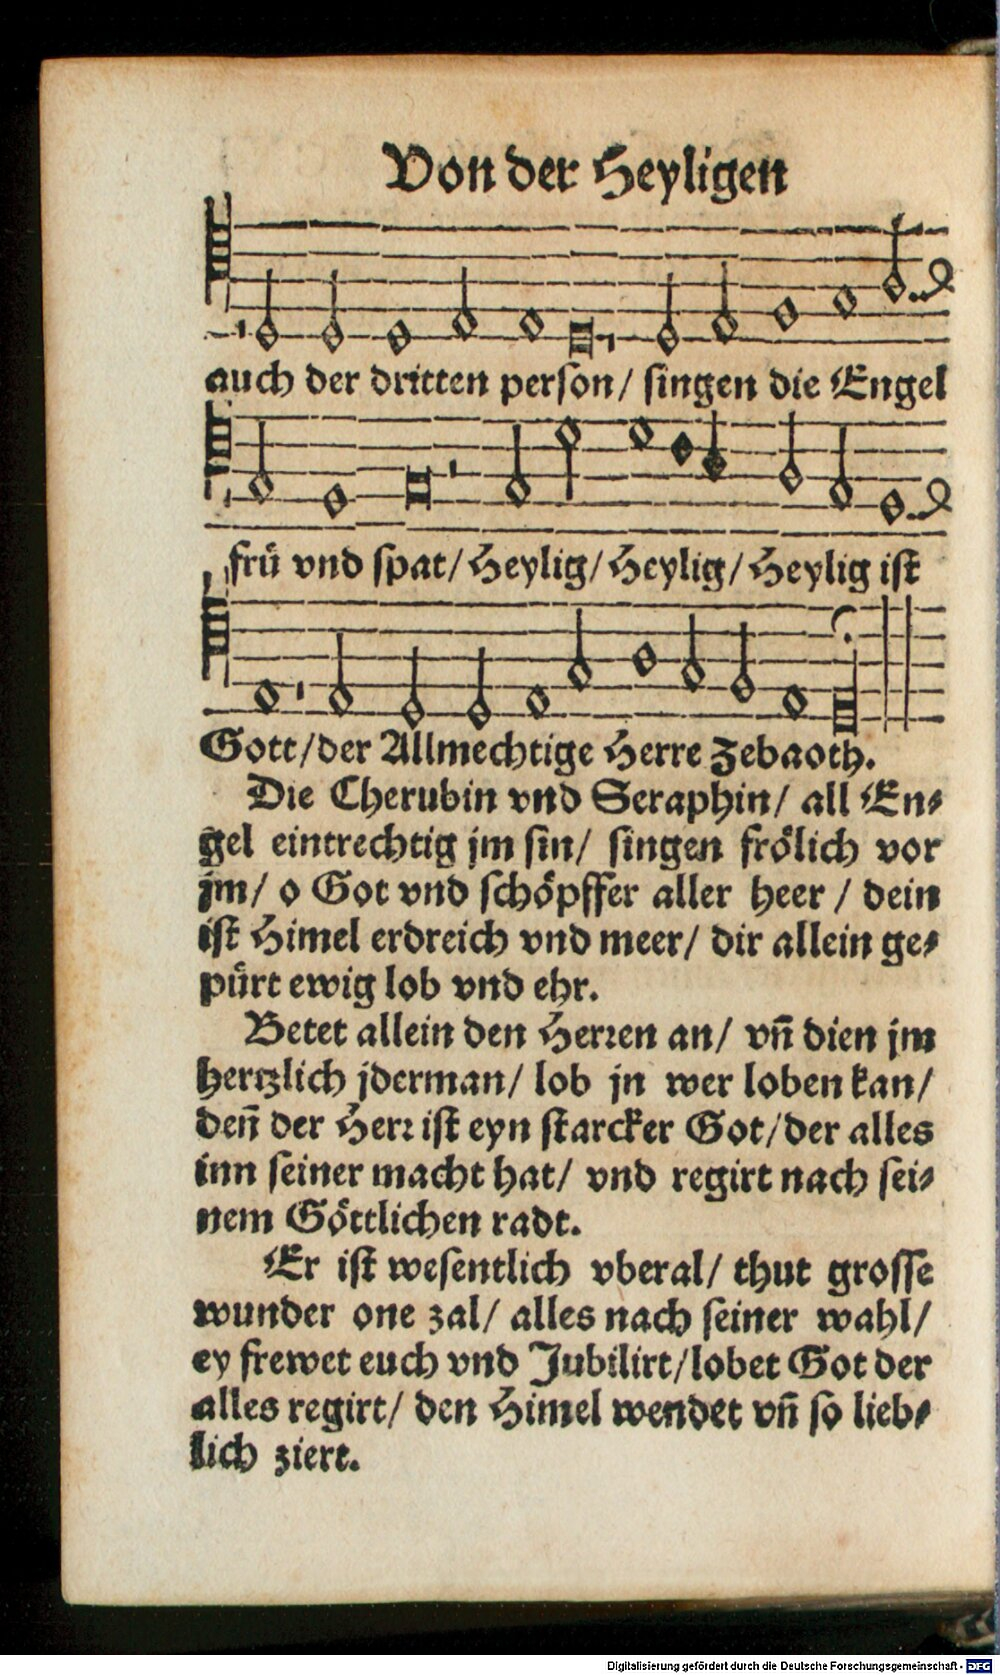 Von der Heyligen
auch der dritten person/ singen die Engel
frü vnd spat/ Heylig/ Heylig/ Heylig ist
Gott/der Allmechtige Herre Zebaoth.
Die Cherubin vnd Seraphin/ all En⸗
gel eintrechtig jm sin/ singen frölich vor
jm/ o Got vnd schöpffer aller heer / dein
ist Himel erdreich vnd meer/ dir allein ge⸗
pürt ewig lob vnd ehr.
Betet allein den Herren an/ vn̄ dien jm
hertzlich jderman/ lob jn wer loben kan/
den̄ der Herr ist eyn starcker Got/der alles
inn seiner macht hat/ vnd regirt nach sei⸗
nem Göttlichen radt.
Er ist wesentlich vberal/ thut grosse
wunder one zal/ alles nach seiner wahl/
ey frewet euch vnd Jubilirt/lobet Got der
alles regirt/ den Himel wendet vn̄ so lieb⸗
lich ziert.
Digitalisierung gefördert durch die Deutsche Forschungsgemeinschaft - DFG